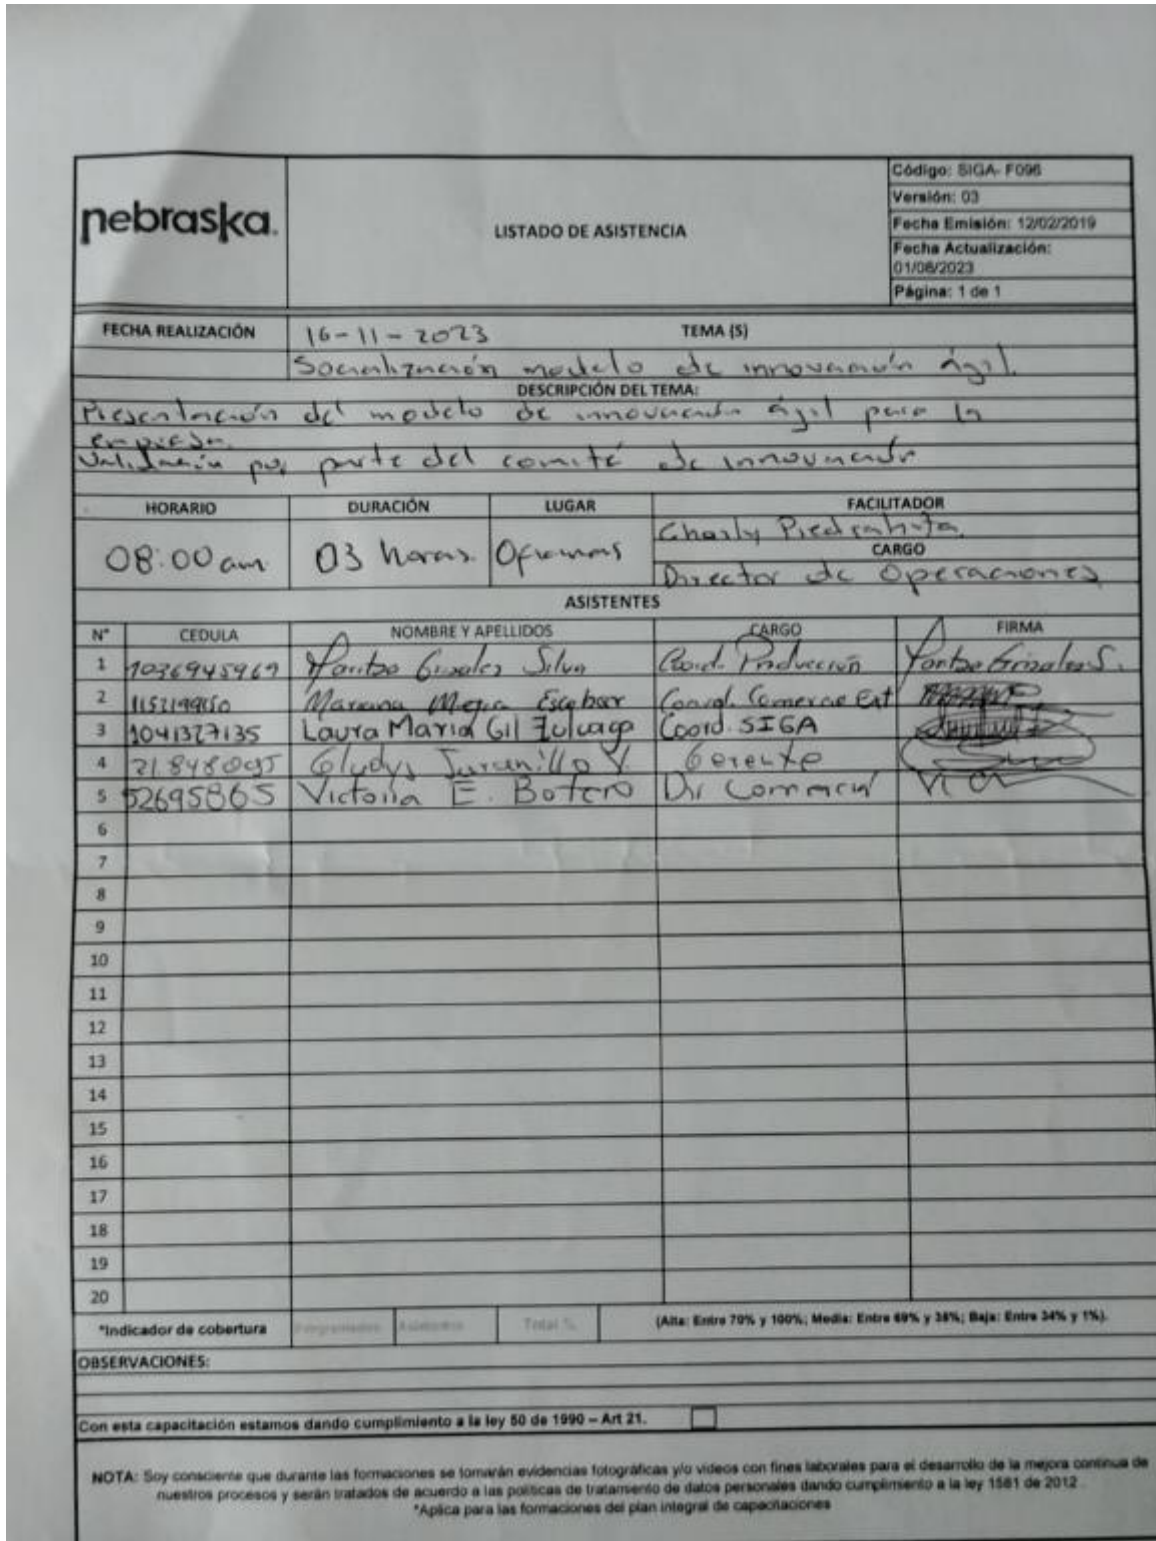 nebraska.
LISTADO DE ASISTENCIA
Código: SIGA- F096
Versión: 03
Fecha Emisión: 12/02/2019
Fecha Actualización:
01/06/2023
Página: 1 de 1
FECHA REALIZACIÓN 16-11-2023 TEMA (S)
Socialización modelo de innovación ágil.
DESCRIPCIÓN DEL TEMA:
Presentación del modelo de innovación ágil para la
empresa.
Validación por parte del comité de innovación
HORARIO DURACIÓN LUGAR FACILITADOR
08:00 am 03 horas. Oficinas Charly Piedrahita
CARGO
Director de Operaciones
ASISTENTES
N° CEDULA NOMBRE Y APELLIDOS CARGO FIRMA
1 1036945969 Grisales Silva Coord. Producción
2 Mariana Mejia Escobar Coord. Comercio Ext
3 1041327135 Laura Maria Gil Zuluaga Coord. SIGA
4 Gladys Jaramillo V. Gerente
5 52695865 Victoria E. Botero Dir Comercial
6
7
8
9
10
11
12
13
14
15
16
17
18
19
20
*Indicador de cobertura Programados Asistentes Total % (Alta: Entre 70% y 100%; Media: Entre 69% y 35%; Baja: Entre 34% y 1%).
OBSERVACIONES:
Con esta capacitación estamos dando cumplimiento a la ley 50 de 1990 – Art 21.
NOTA: Soy consciente que durante las formaciones se tomarán evidencias fotográficas y/o videos con fines laborales para el desarrollo de la mejora continua de
nuestros procesos y serán tratados de acuerdo a las políticas de tratamiento de datos personales dando cumplimiento a la ley 1581 de 2012 .
*Aplica para las formaciones del plan integral de capacitaciones